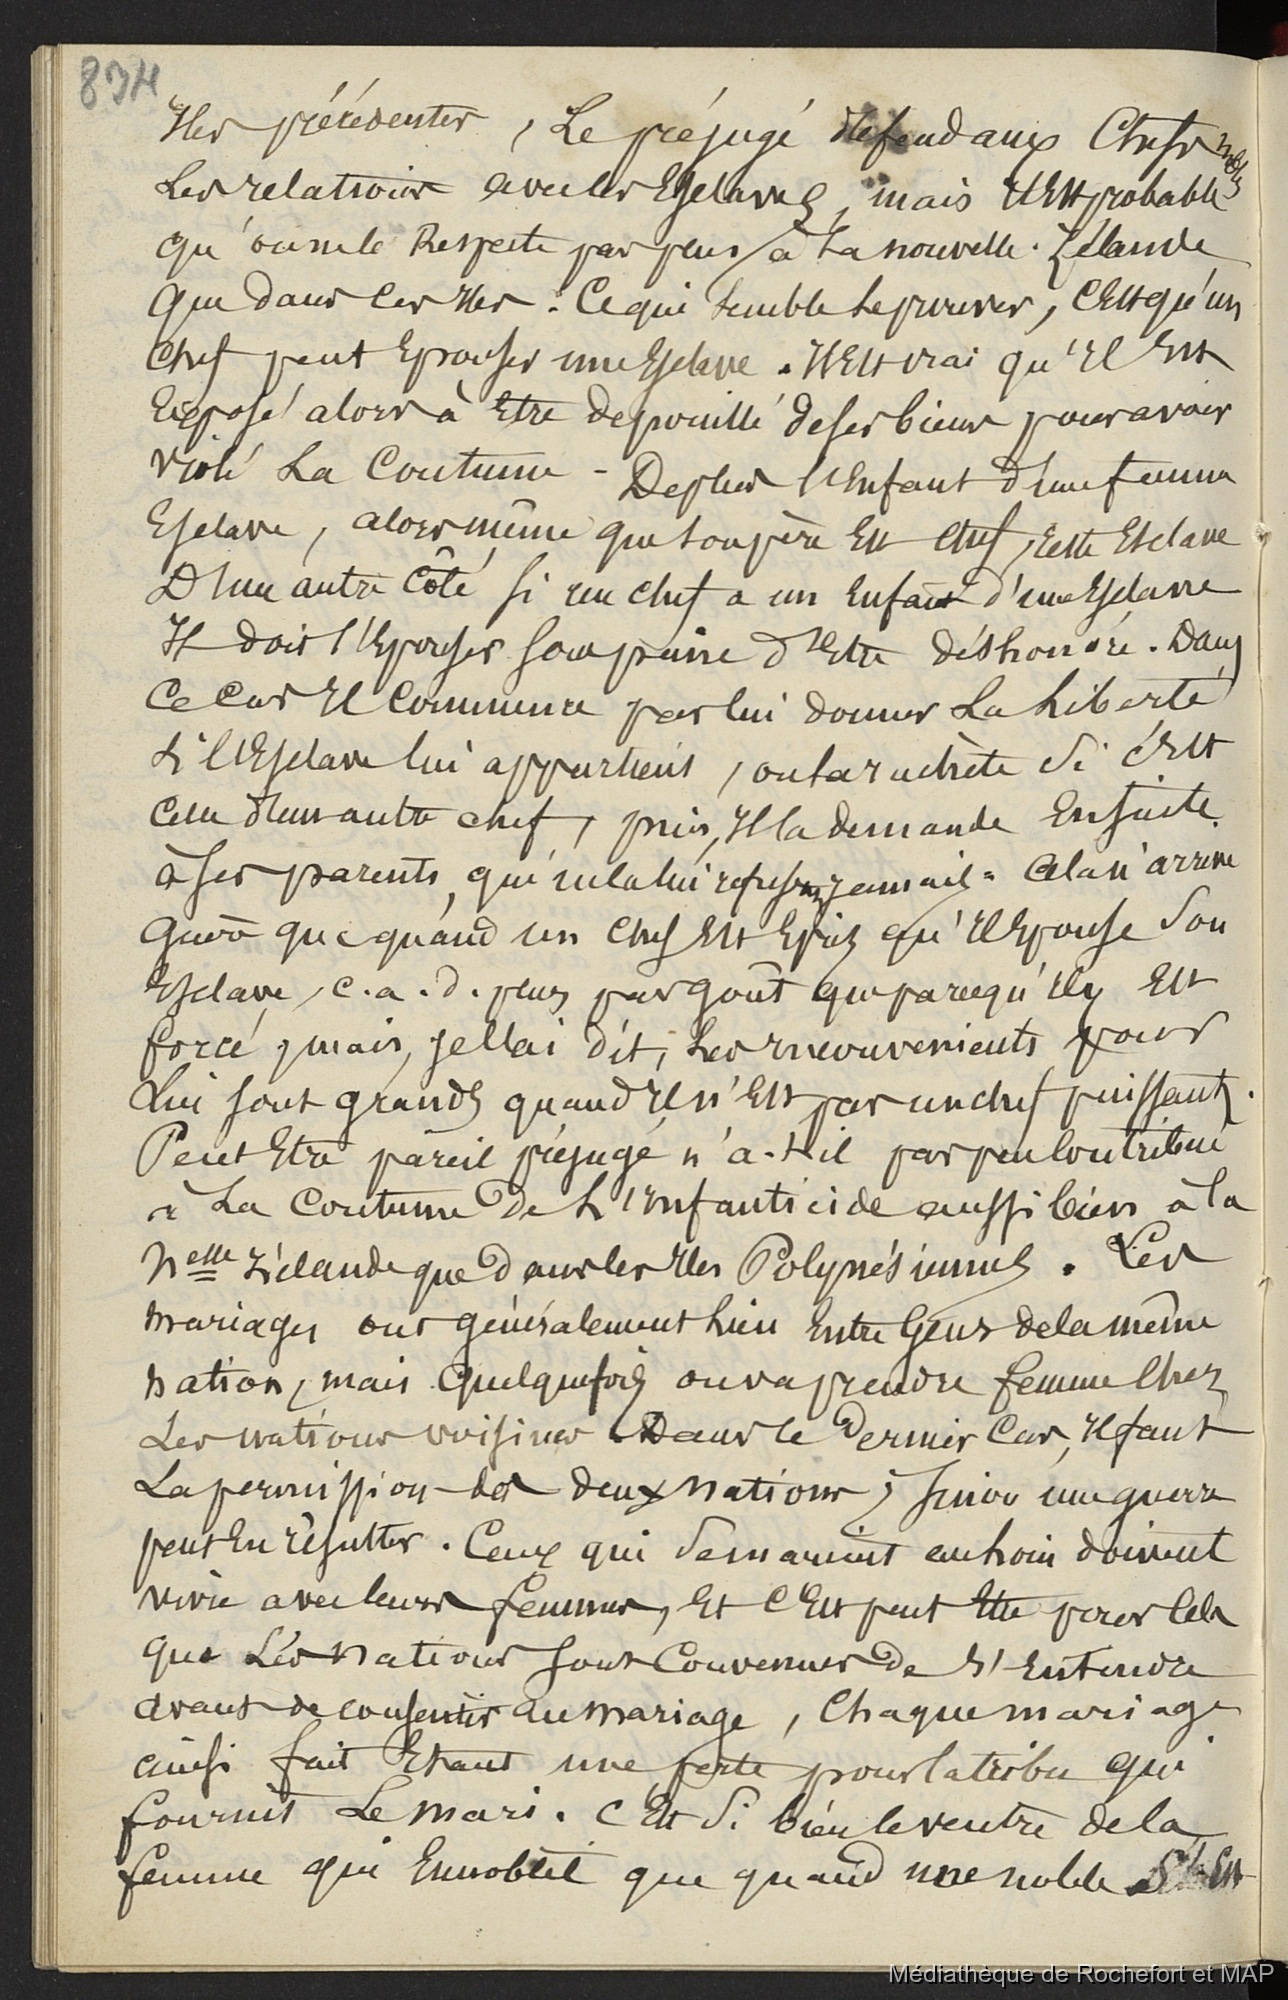 834
Iles précédentes, Le préjugé défend aux Chefs
Les relations avec les Esclaves, mais il Est probable
qu'on ne le Respecte pas plus à La nouvelle. Zélande
Que dans ces Iles. Ce qui semble le prouver, C'Est qu'un
chef peut Epouser une Esclave. Il Est vrai qu'Il Est
Exposé alors à Etre depouillé de ses biens pour avoir
violé La Coutume - De plus l'Enfant d'une femme
Esclave, alors même que son père Est chef, reste Esclave
D'un autre Côté si un chef a un Enfant d'une Esclave
Il doit l'Epouser sous peine d'Etre déshonoré. Dans
Ce Cas Il Commence par lui donner La Liberté
Si l'Esclave lui appartient, ou la rachète si c'Est
Celle d'un autre chef, puis, Il la demande Ensuite
à ses parents, qui ne la lui refusent jamais. Cela n'arrive
Guère que quand un chef Est Epris qu'Il Epouse son
Esclave, c.a.d. plus par goût que parcequ'Il y Est
forcé, mais, je l'ai dit, Les inconvenients pour
Lui sont grands quand Il n'Est pas un chef puissant.
Peut Etre pareil préjugé n'a-t-il pas peu Contribué
à La Coutume de L'Infanticide aussi bien à la
Nelle Zélande que dans les Iles Polynésiennes. Les
mariages ont généralement Lieu Entre Gens de la même
nation, mais Quelquefois on va prendre femme Chez
Les nations voisines. Dans le dernier Cas, Il faut
La permission des deux nations, sinon une guerre
peut En résulter. Ceux qui se marient au loin doivent
vivre avec leurs femmes, Et C'Est peut Etre pour Cela
que Les nations sont Convenues de s'Entendre
avant de consentir au mariage, Chaque mariage
ainsi fait Etant une perte pour la tribu qui
fournit Le mari. C'Est si bien le ventre de la
femme qui Ennoblit que quand une noble s'Est
Médiathèque de Rochefort et MAP